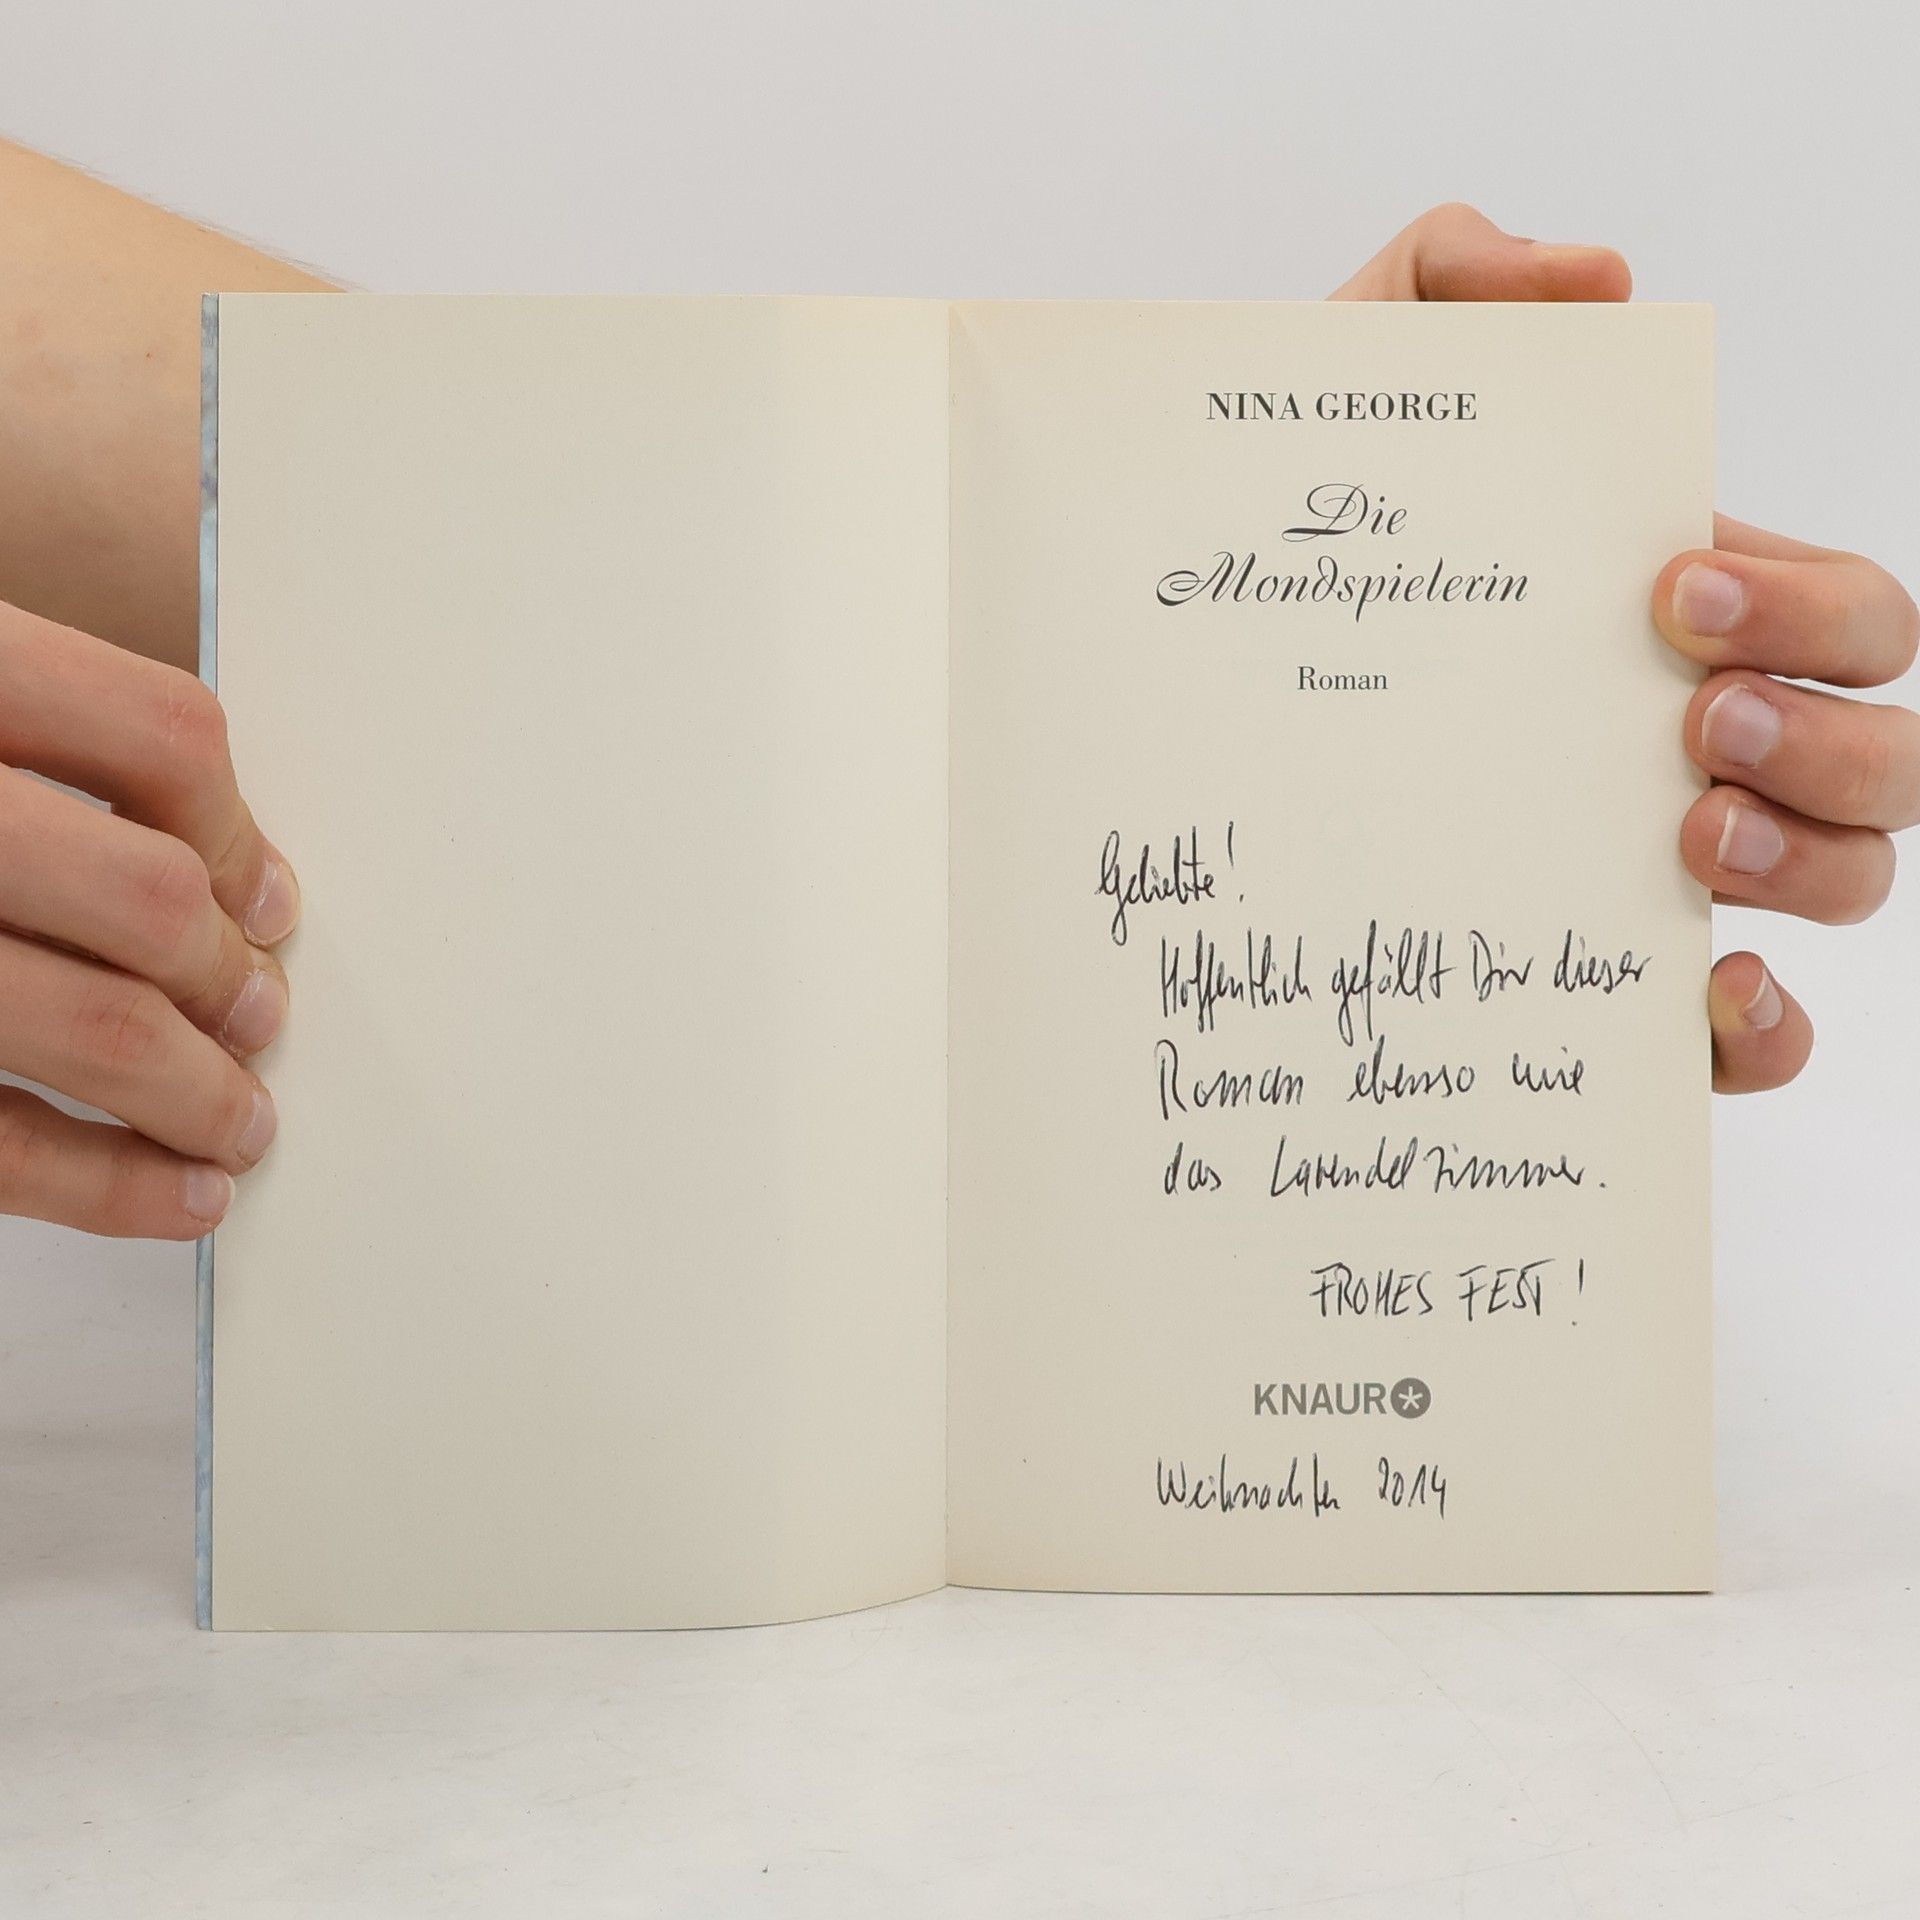 NINA GEORGE
Die
Mondspielerin
Roman
Geliebte!
Hoffentlich gefällt Dir dieser
Roman ebenso wie
das Lavendelzimmer.
FROHES FEST!
KNAUR
Weihnachten 2014